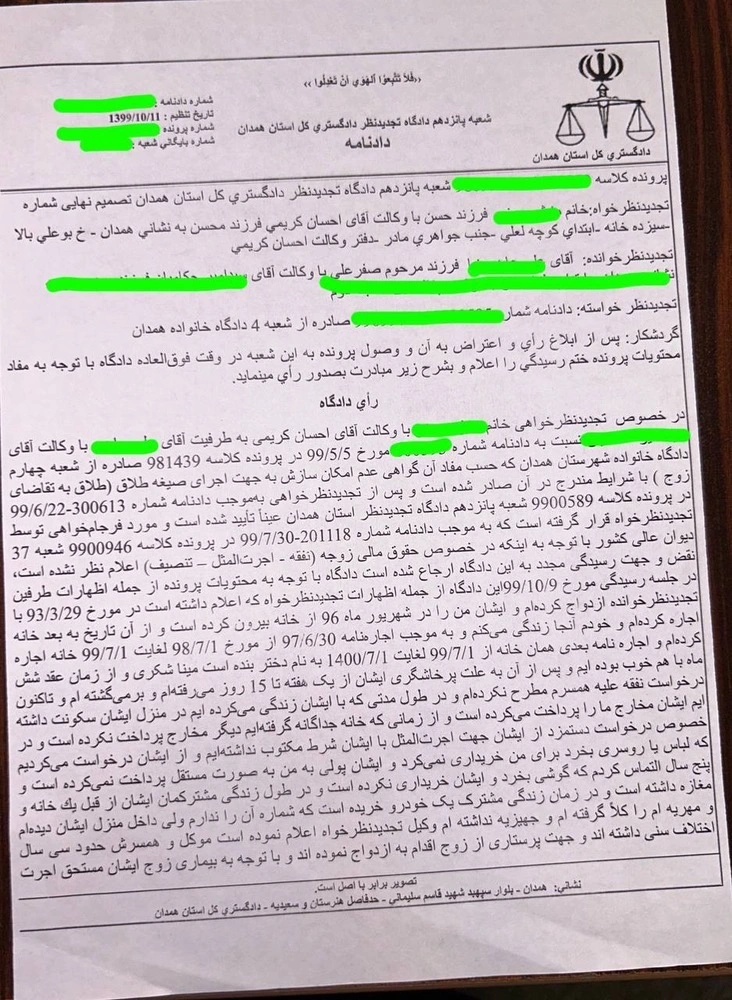 «فَلا تَتَّبِعوُا اَلهَوي اَنْ تَعْدِلُوا»
شماره دادنامه :
تاریخ تنظیم : 1399/10/11
شماره پرونده
شماره بایگاني شعبه :
شعبه پانزدهم دادگاه تجدیدنظر دادگستري کل استان همدان
دادنامه
دادگستري کل استان همدان
پرونده کلاسه شعبه پانزدهم دادگاه تجدیدنظر دادگستري کل استان همدان تصمیم نهایی شماره
تجدیدنظرخواه:خانم فرزند حسن با وکالت آقای احسان کریمي فرزند محسن به نشاني همدان - خ بوعلي بالا
-سیزده خانه -ابتداي کوچه لعلي -جنب جواهري مادر -دفتر وکالت احسان کریمي
تجدیدنظرخوانده: آقای فرزند مرحوم صفرعلي با وکالت آقای
تجدیدنظر خواسته: دادنامه شمار صادره از شعبه 4 دادگاه خانواده همدان
گردشکار: پس از ابلاغ رأي و اعتراض به آن و وصول پرونده به این شعبه در وقت فوق‌العاده دادگاه با توجه به مفاد
محتویات پرونده ختم رسیدگي را اعلام و بشرح زیر مبادرت بصدور رأي مینماید.
رأي دادگاه
در خصوص تجدیدنظرخواهی خانم با وکالت آقای احسان کریمی به طرفیت آقای با وکالت آقای
نسبت به دادنامه شماره مورخ 99/5/5 در پرونده کلاسه 981439 صادره از شعبه چهارم
دادگاه خانواده شهرستان همدان که حسب مفاد آن گواهی عدم امکان سازش به جهت اجرای صیغه طلاق (طلاق به تقاضای
زوج ) با شرایط مندرج در آن صادر شده است و پس از تجدیدنظرخواهی به‌موجب دادنامه شماره 300613-99/6/22
در پرونده کلاسه 9900589 شعبه پانزدهم دادگاه تجدیدنظر استان همدان عیناً تأیید شده است و مورد فرجام‌خواهی توسط
تجدیدنظرخواه قرار گرفته است که به موجب دادنامه شماره 201118-99/7/30 در پرونده کلاسه 9900946 شعبه 37
دیوان عالی کشور با توجه به اینکه در خصوص حقوق مالی زوجه (نفقه - اجرت‌المثل – تنصیف) اعلام نظر نشده است،
نقض و جهت رسیدگی مجدد به این دادگاه ارجاع شده است دادگاه با توجه به محتویات پرونده از جمله اظهارات طرفین
در جلسه رسیدگی مورخ 99/10/9این دادگاه از جمله اظهارات تجدیدنظرخواه که اعلام داشته است در مورخ 93/3/29 با
تجدیدنظرخوانده ازدواج کرده‌ام و ایشان من را در شهریور ماه 96 از خانه بیرون کرده است و از آن تاریخ به بعد خانه
اجاره کرده‌ام و خودم آنجا زندگی می‌کنم و به موجب اجاره‌نامه 97/6/30 از مورخ 98/7/1 لغایت 99/7/1 خانه اجاره
کرده‌ام و اجاره نامه بعدی همان خانه از 99/7/1 لغایت 1400/7/1 به نام دختر بنده است مینا شکری و از زمان عقد شش
ماه با هم خوب بوده ایم و پس از آن به علت پرخاشگری ایشان از یک هفته تا 15 روز می‌رفته‌ام و برمی‌گشته ام و تاکنون
درخواست نفقه علیه همسرم مطرح نکرده‌ام و در طول مدتی که با ایشان زندگی می‌کرده ایم در منزل ایشان سکونت داشته
ایم ایشان مخارج ما را پرداخت می‌کرده است و از زمانی که خانه جداگانه گرفته‌ایم دیگر مخارج پرداخت نکرده است و در
خصوص درخواست دستمزد از ایشان جهت اجرت‌المثل با ایشان شرط مکتوب نداشته‌ایم و از ایشان درخواست می‌کردیم
که لباس یا روسری بخرد برای من خریداری نمی‌کرد و ایشان پولی به من به صورت مستقل پرداخت نمی‌کرده است و
پنج سال التماس کردم که گوشی بخرد و ایشان خریداری نکرده است و در طول زندگی مشترکمان ایشان از قبل یك خانه و
مغازه داشته است و در زمان زندگی مشترک یک خودرو خریده است که شماره آن را ندارم ولی داخل منزل ایشان دیده‌ام
و مهریه ام را کلاً گرفته ام و جهیزیه نداشته ام وکیل تجدیدنظرخواه اعلام نموده است موکل و همسرش حدود سی سال
اختلاف سنی داشته اند و جهت پرستاری از زوج اقدام به ازدواج نموده اند و با توجه به بیماری زوج ایشان مستحق اجرت
تصویر برابر با اصل است.
نشاني: همدان - بلوار سپهبد شهید قاسم سلیماني - حدفاصل هنرستان و سعیدیه - دادگستري کل استان همدان